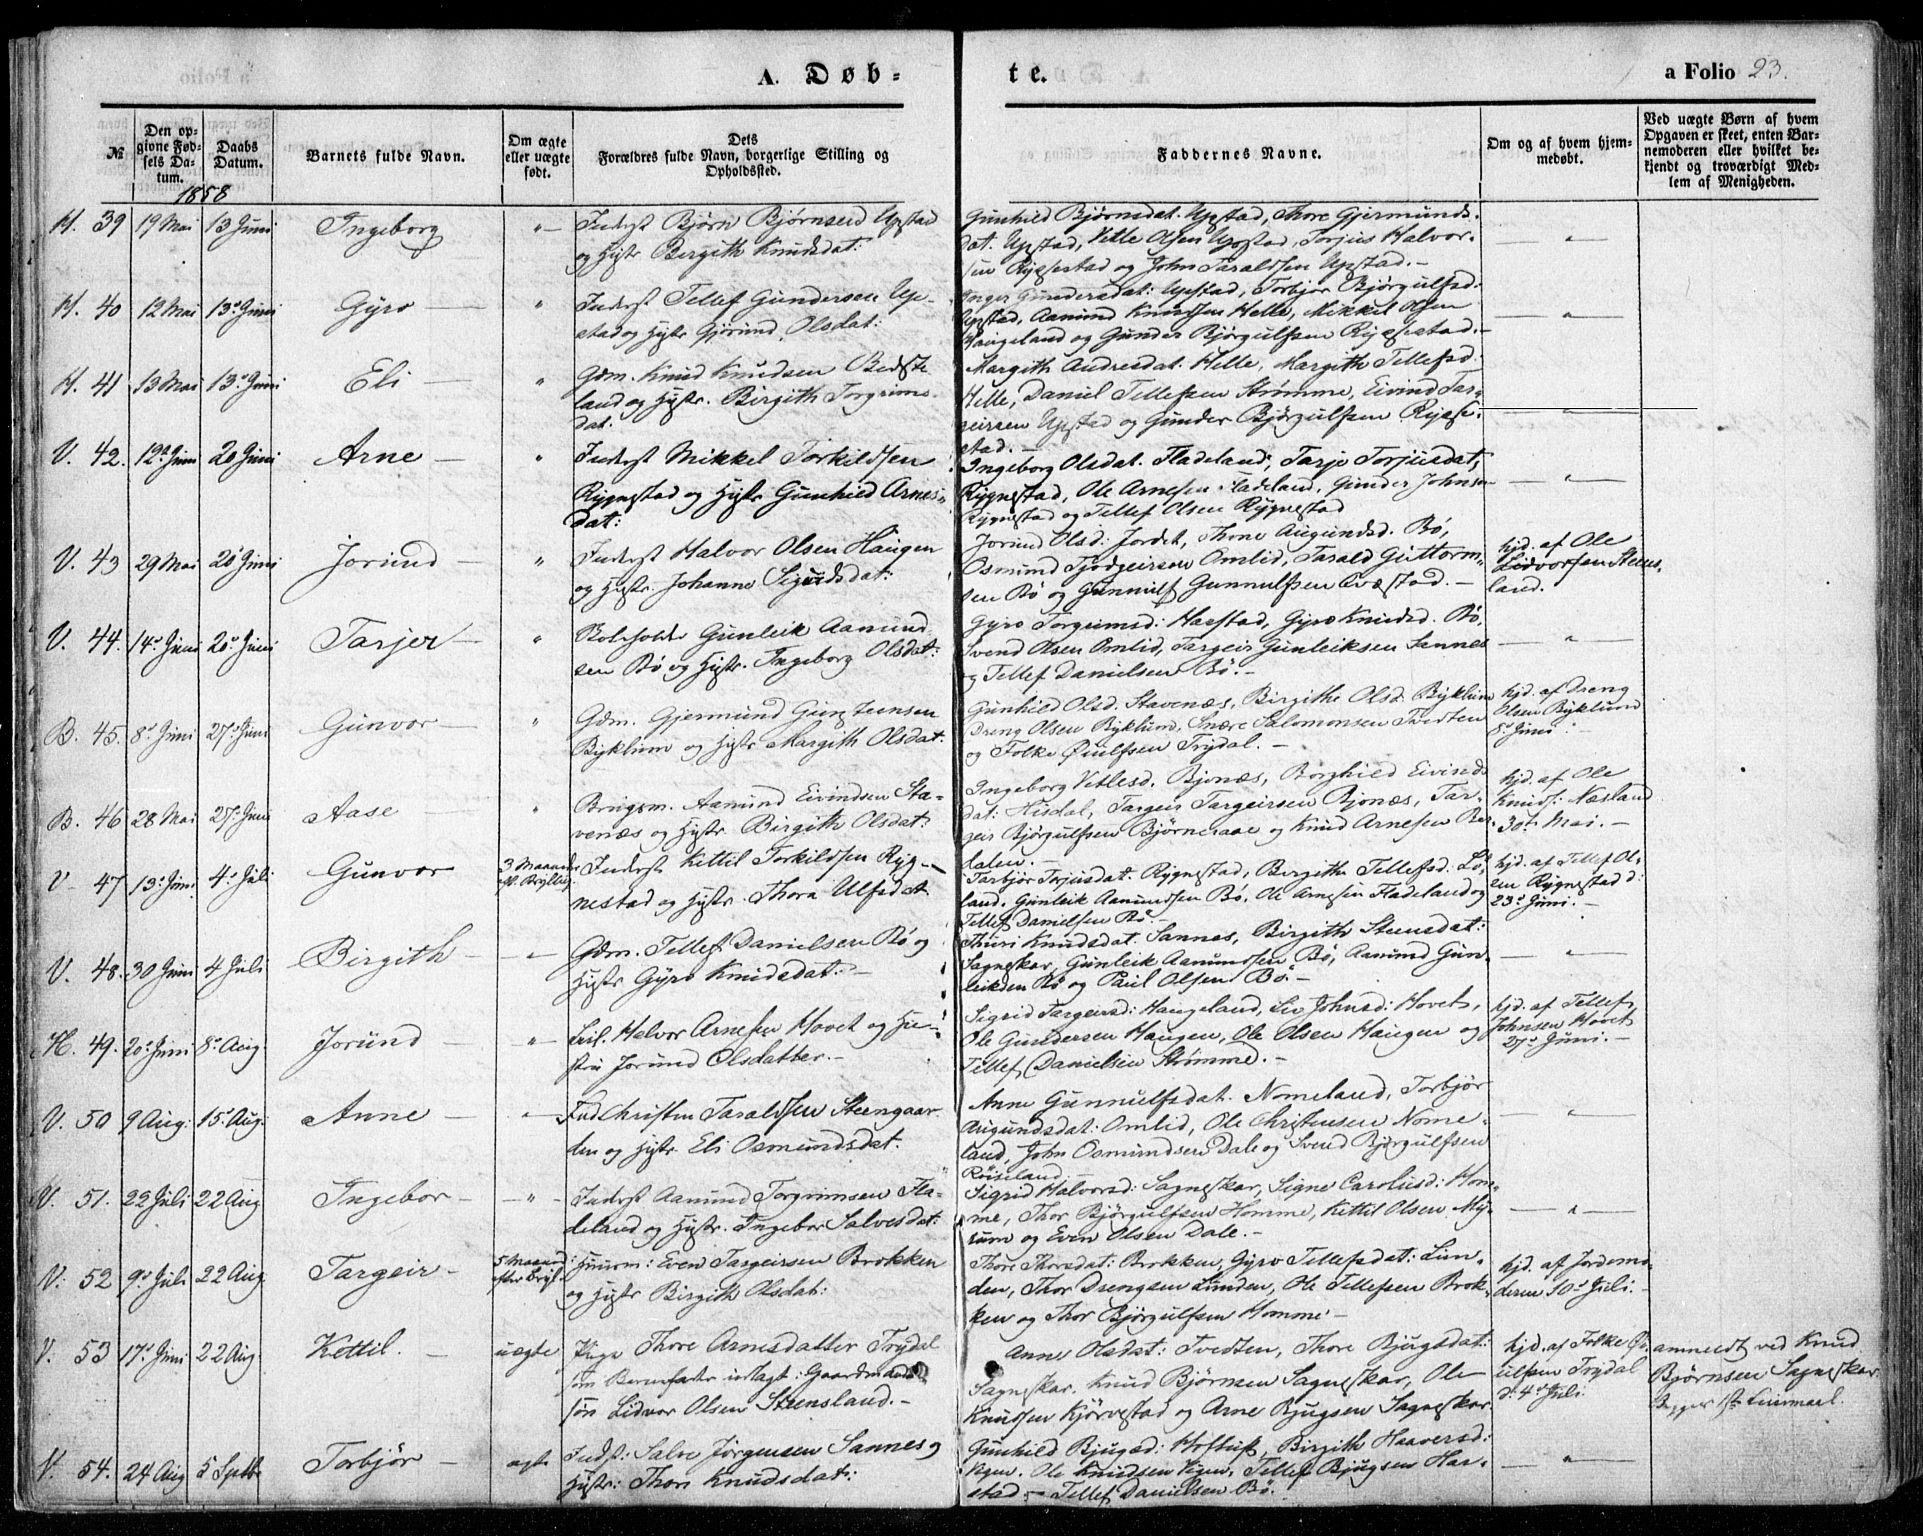 A. Døb-
te.
a Folio 23.
№
Den op-
givne Fød-
sels Da-
tum.
Daabs
Datum.
Barnets fulde Navn.
Om ægte
eller uægte
født.
Dets
Forældres fulde Navn, borgerlige Stilling og
Opholdssted.
Faddernes Navne.
Om og af hvem hjem-
medøbt.
Ved uægte Børn af hvem
Opgaven er skeet, enten Bar-
nemoderen eller hvilket be-
kjendt og troværdigt Med-
lem af Menigheden.
1858
H. 39 19 Mai 13 Juni Ingeborg — „ — Inderst Bjørn Bjørnsen Upstad
og Hstr. Bergith Knudsdat:
Gunhild Bjørnsdat. Upstad, Thore Gjermunds-
dat. Upstad, Vetle Olsen Upstad, Torjus Halvor-
sen Rysestad og John Taraldsen Upstad. —
— „ —
H. 40 12 Mai 13 Juni Gyro — „ Inderst Tellef Gundersen Up-
stad og Hstr. Gjørund Olsdat:
Inger Gundersdat: Upstad, Torbjør Bjørgulfsd.
Upstad, Aamund Knudsen Helle, Mikkel Olsen
Haugeland og Gunder Bjørgulfsen Rysestad. —
— „ —
H. 41 13 Mai 13 Juni Eli — „ Gdm. Knud Knudsen Bedste-
land og Hstr. Birgith Torgrims-
dat.
Margith Andresdat. Helle, Margith Tellefsd.
Helle, Daniel Tellefsen Strømme, Eivind Tar-
geirsen Upstad og Gunder Bjørgulfsen Ryse-
stad. —
— „ —
V. 42. 12 Juni 20 Juni Arne — „ Inderst Mikkel Torkildsen
Rygnestad og Hstr. Gunhild Arnes-
dat:
Ingeborg Olsdat. Fladeland, Tarje Torjusdat,
Rygnestad, Ole Arnesen Fladeland, Gunder Johnsen
Rygnestad og Tellef Olsen Rygnestad
— „ —
V. 43 29 Mai 20 Juni Jorund — „ Inderst Halvor Olsen Haugen
og Hstr. Johanne Sigurdsdat:
Jorund Olsd: Jordet, Thone Augundsd. Bø,
Osmund Tjodgeirsen Omlid, Tarald Guttorm-
sen Bø og Gunnulf Gunnulfsen Qvæstad. —
hjd. af Ole
Lidvorsen Steens-
land.
V. 44. 14 Juni 20 Juni Tarjer — „ Gunleik Aamund-
sen Bø og Hstr. Ingeborg Olsdat:
Gyro Torgrimsd: Harstad, Gyro Knudsd. Bø,
Svend Olsen Omlid, Targeir Gunleiksen Sannes
og Tellef Danielsen Bø. —
— „ —
B. 45. 8 Juni 27 Juni Gunvor — „ Gdm. Gjermund Gunsteensen
Byklum og Hstr. Margith Olsdat.
Gunhild Olsd. Stavenæs, Birgithe Olsd. Byklum
Dreng Olsen Byklum, Snære Salomonsen Tvedten
og Folke Øiulfsen Trydal. —
hjd. af Dreng
Olsen Byklund
8 Juni
B. 46 28 Mai 27 Juni Aase — „ Brugsm. Aamund Eivindsen Sta-
venæs og Hstr. Birgith Olsdat:
Ingeborg Vetlesd. Bjonæs, Borghild Eivinds-
dat: Hisdal, Targeir Targeirsen Bjonæs, Tar-
geir Bjørgulfsen Bjørnaraae og Knud Arnesen Ber-
dalen. —
hjd. af Ole
Knuds: Næsland
30 Mai. —
V. 47 13 Juni 4 Juli Gunvor 3 Maaneder
eft. Bryllup. Inderst Kittil Torkildsen Ryg-
nestad og Hstr. Thora Ulfsdat
Tarbjør Torjusdat. Rygnestad, Bergith Tellefsd. Lø-
land. Gunleik Aamundsen Bø, Ole Arnesen Fladeland og
Tellef Danielsen Bø. —
hjd. af Tellef Ol-
sen Rygnestad d:
23 Juni. —
V. 48. 30 Juni 4 Juli Birgith — „ — Gdm. Tellef Danielsen Bø og
Hstr. Gyro Knudsdat. —
Thuri Knudsdat. Sannes, Birgith Steensdat:
Sagneskar, Gunleik Aamundsen Bø, Aamund Gun-
leiksen Bø og Paul Olsen Bø. —
— „ —
H. 49. 20 Juni 8 Aug. Jorund — „ — Halvor Arnesen Hovet og Hu-
stru Jorund Olsdatter. —
Sigrid Targeirsd: Haugeland, Liv Johnsd: Hovet,
Ole Gundersen Haugen, Ole Olsen Haugen og
Tellef Danielsen Strømme. —
hjd. af Tellef
Johnsen Hovet
27 Juni. —
V. 50 9 Aug: 15 Aug. Anne — „ — Ind Christen Taraldsen Steengaar-
den og Hstr. Eli Osmundsdat:
Anne Gunnulfsdat. Nomeland, Torbjør
Augundsdat: Omlid, Ole Christensen Nome-
land, John Osmundsen Dale og Svend Bjørgulfsen
Røiseland
— „ —
V. 51. 22 Juli 22 Aug Ingebor — — „ — Inderst Aamund Torgrimsen Fla-
deland og Hstr. Ingebor Salvesdat:
Sigrid Halvorsd: Sagneskar, Signe Carolusd: Hom-
me, Thor Bjørgulfsen Homme, Kittil Olsen My-
rum og Even Olsen Dale. —
— „ —
V. 52 9 Juli 22 Aug. Targeir — 5 Maaned:
efter Bryl. Huusm: Even Targeirsen Brokken
og Hstr. Birgith Olsdat:
Thore Thorsdat: Brokken, Gyro Tellefsdat: Lun-
den, Thor Drengsen Lunden, Ole Tellefsen Brok-
ken og Thor Bjørgulfsen Homme —
hjd. af Jordemo-
deren 10 Juli. —
V. 53 17 Juni 22 Aug. Kettil. — uægte Pige Thore Arnesdatter Trydal
som Barnefader udlagt: Gaardmands-
søn Lidvor Olsen Steensland. —
Anne Olsdat: Tvedten, Thore Bjugsdat:
Sagneskar. Knud Bjørnsen Sagneskar, Ole
Knudsen Kjørvestad og Arne Bjugsen Sagneskar.
hjd. af Folke Øi-
ulfsen Trydal
d. 4 Juli
anmeldt ved Knud
Bjørnsen Sagneskar
Begges 1ste Leiermaal.
V. 54. 24 Aug 5 Septb Torbjør — ægte Indst: Salve Jørgensen Sannes og
Hstr: Thore Knudsdat:
Gunhild Bjugsd: Hoftuft, Birgith Haaversd:
Vigen. Ole Knudsen Vigen, Tellef Bjugsen Har-
stad. — Tellef Danielsen Bø.
— „ —